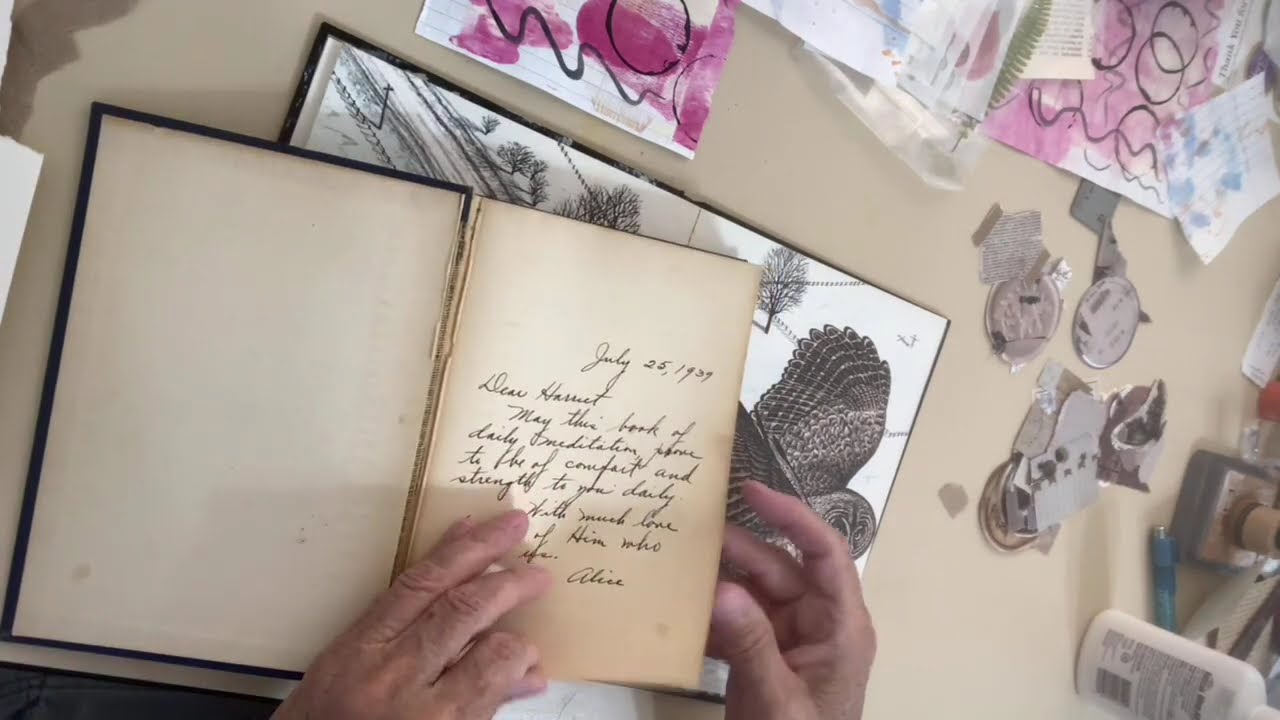 July 25, 1939
Dear Harriet
May this book of
daily meditation, prove
to be of comfort and
strength to you daily.
With much love
of Him who
us.
Alice
Thank You for